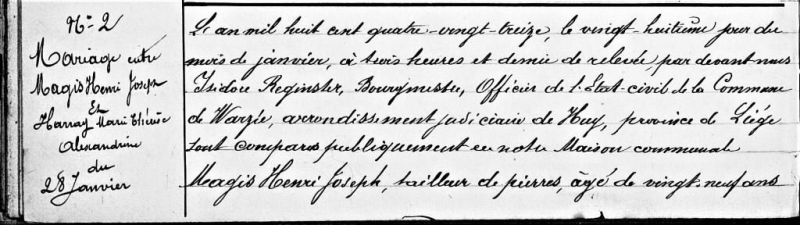 N° 2
Mariage entre
Magis Henri Joseph
Et
Harray Marie Thérèse
Alexandrine
du
28 Janvier
L'an mil huit cent quatre-vingt-treize, le vingt-huitième jour du
mois de janvier, à trois heures et demie de relevée, par devant nous
Isidore Reginster, Bourgmestre, Officier de l'Etat-civil de la Commune
de Warzée, arrondissement judiciaire de Huy, province de Liége
sont comparus publiquement en notre Maison communale
Magis Henri Joseph, tailleur de pierres, âgé de vingt-neuf ans